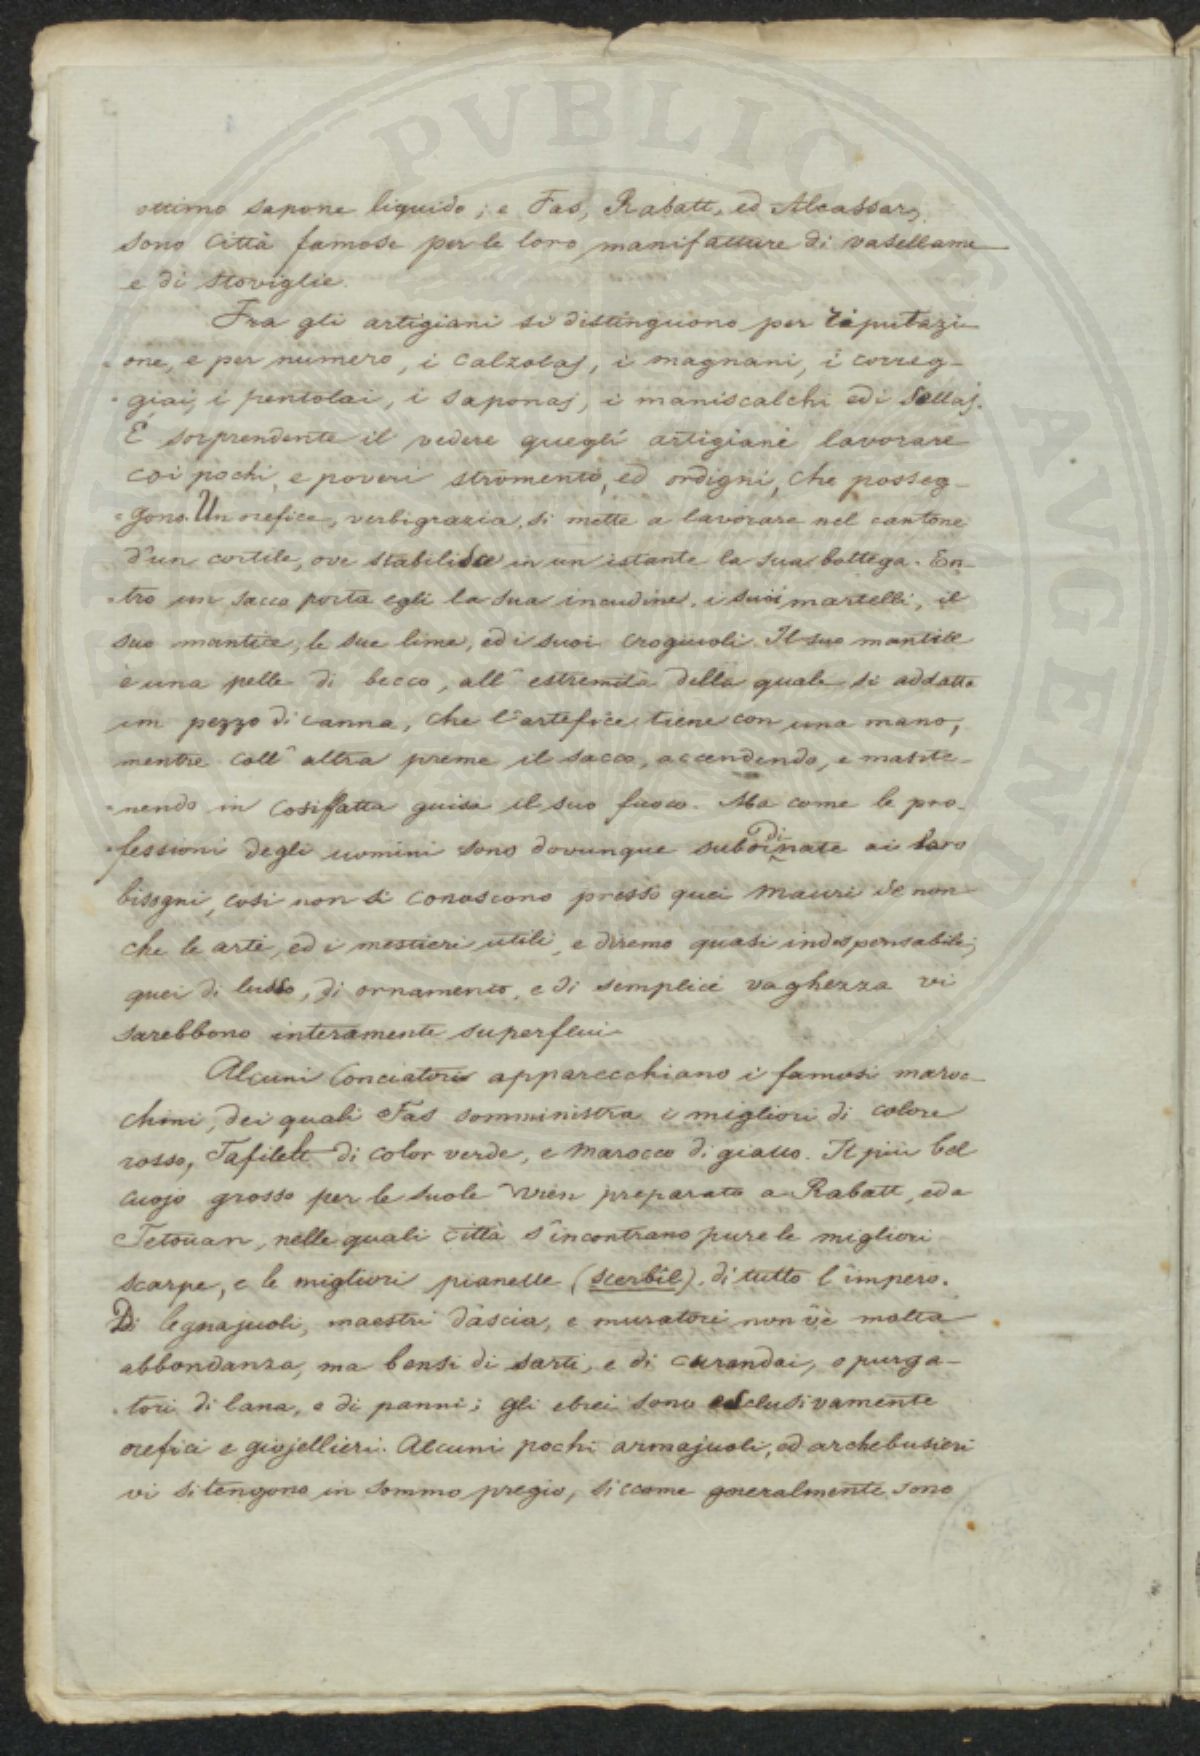 ottimo sapone liquido; e Fas, Rabatt, ed Alcassar,
sono Città famose per le loro manifatture di vasellame
e di stoviglie.
Fra gli artigiani si distinguono per riputazi-
one, e per numero, i calzolaj, i magnani, i correg-
giai, i pentolai, i saponaj, i maniscalchi ed i sellaj.
É sorprendente il vedere quegli artigiani lavorare
coi pochi, e poveri stromenti, ed ordigni, che posseg-
gono. Un orefice, verbigrazia, si mette a lavorare nel cantone
d'un cortile, ove stabilisce in un istante la sua bottega. En-
tro un sacco porta egli la sua incudine, i suoi martelli, il
suo mantice, le sue lime, ed i suoi crogiuoli. Il suo mantice
è una pelle di becco, all'estremità della quale si addatta
un pezzo di canna, che l'artefice tiene con una mano,
mentre coll'altra preme il sacco, accendendo, e mante-
nendo in cosiffatta guisa il suo fuoco. Ma come le pro-
fessioni degli uomini sono dovunque subordinate ai loro
bisogni, così non si conoscono presso quei Mauri se non
che le arti, ed i mestieri utili, e diremo quasi indispensabili;
quei di lusso, di ornamento, e di semplice vaghezza vi
sarebbono interamente superflui.
Alcuni Conciatori apparecchiano i famosi maroc-
chini, dei quali Fas somministra i migliori di colore
rosso, Tafilelt di color verde, e Marocco di giallo. Il più bel
cuojo grosso per le suole vien preparato a Rabatt, ed a
Tetouan, nelle quali città s'incontrano pure le migliori
scarpe, e le migliori pianelle (scerbil), di tutto l'impero.
Di legnajuoli, maestri d'ascia, e muratori non v'è molta
abbondanza, ma bensi di sarti, e di curandai, o purga-
tori di lana, e di panni; gli ebrei sono esclusivamente
orefici e giojellieri. Alcuni pochi armajuoli, ed archebusieri
vi si tengono in sommo pregio, siccome generalmente sono
PVBLIC AVGEND